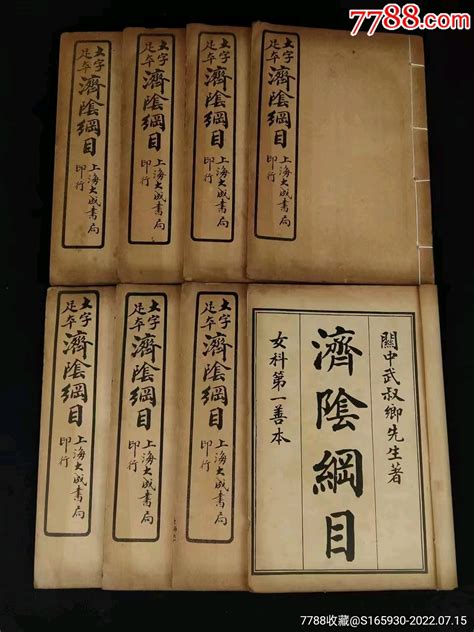 7788.com
大字足本
濟陰綱目
上海大成書局印行
大字足本
濟陰綱目
上海大成書局印行
大字足本
濟陰綱目
上海大成書局印行
大字足本
濟陰綱目
上海大成書局印行
大字足本
濟陰綱目
上海大成書局印行
大字足本
濟陰綱目
上海大成書局印行
大字足本
濟陰綱目
上海大成書局印行
關中武叔卿先生著
濟陰綱目
女科第一善本
7788收藏@S165930-2022.07.15